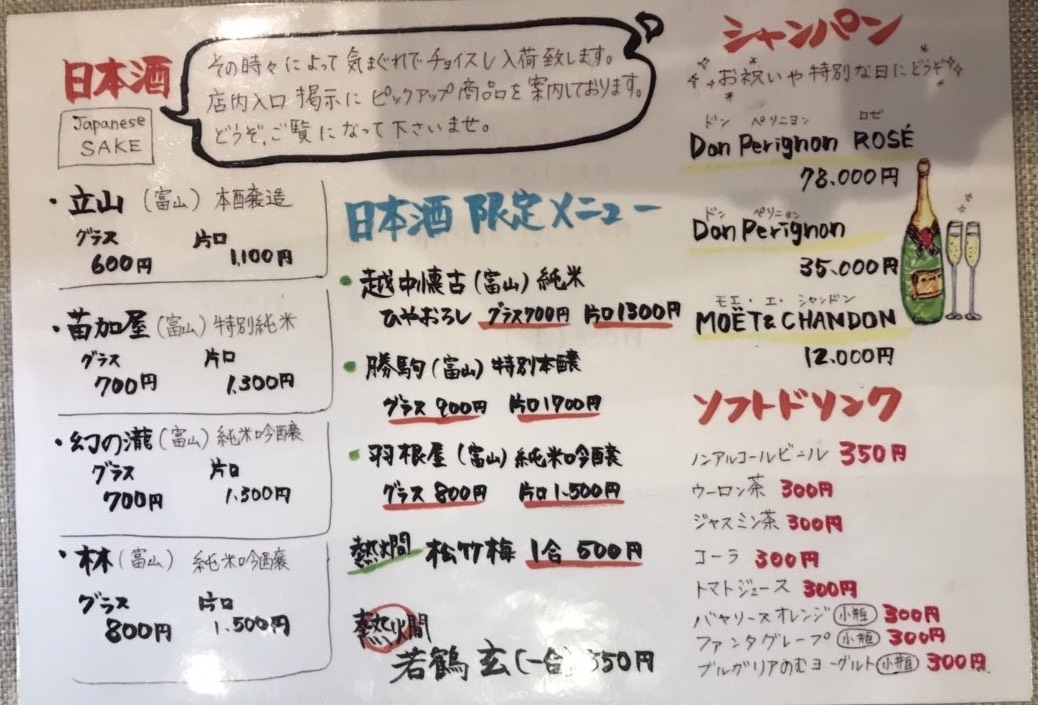 日本酒
Japanese
SAKE
その時々によって気まぐれでチョイスし入荷致します。
店内入口掲示にピックアップ商品を案内しております。
どうぞ、ご覧になって下さいませ。
・立山(富山)本醸造
グラス 片口
600円 1,100円
・苗加屋(富山)特別純米
グラス 片口
700円 1,300円
・幻の瀧(富山)純米吟醸
グラス 片口
700円 1,300円
・林(富山)純米吟醸
グラス 片口
800円 1,500円
日本酒 限定メニュー
・越中懐古(富山)純米
ひやおろし グラス700円 片口1300円
・勝駒(富山)特別本醸
グラス 900円 片口1700円
・羽根屋(富山)純米吟醸
グラス 800円 片口1,500円
熱燗 松竹梅 1合 500円
熱燗
若鶴 玄(一合) 550円
シャンパン
お祝いや特別な日にどうぞ
ドン ペリニヨン ロゼ
Don Perignon ROSÉ
78,000円
ドン ペリニヨン
Don Perignon
35,000円
モエ・エ・シャンドン
MOËT & CHANDON
12,000円
ソフトドリンク
ノンアルコールビール 350円
ウーロン茶 300円
ジャスミン茶 300円
コーラ 300円
トマトジュース 300円
バヤリースオレンジ 小瓶 300円
ファンタグレープ 小瓶 300円
ブルガリアのむヨーグルト 小瓶 300円